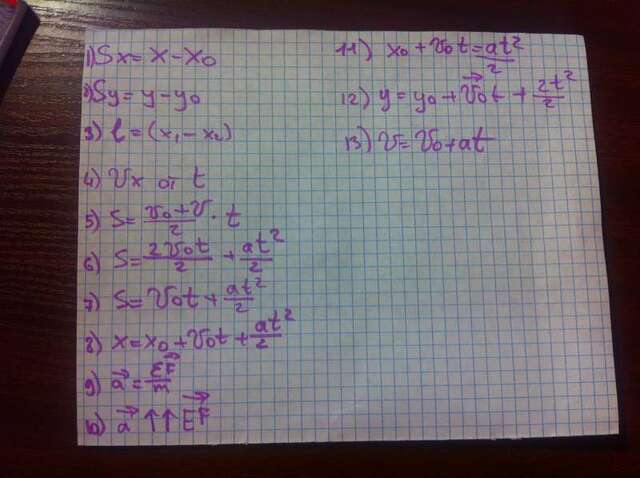 1) Sx = x - x₀
2) Sy = y - y₀
3) l = (x₁ - x₂)
4) υx от t
5) S = (υ₀ + υ)/2 · t
6) S = 2υ₀t/2 + at²/2
7) S = υ₀t + at²/2
8) x = x₀ + υ₀t + at²/2
9) a⃗ = ΣF⃗/m
10) a⃗ ↑↑ ΣF⃗
11) x₀ + υ₀t = at²/2
12) y = y₀ + υ⃗₀t + 2t²/2
13) υ = υ₀ + at